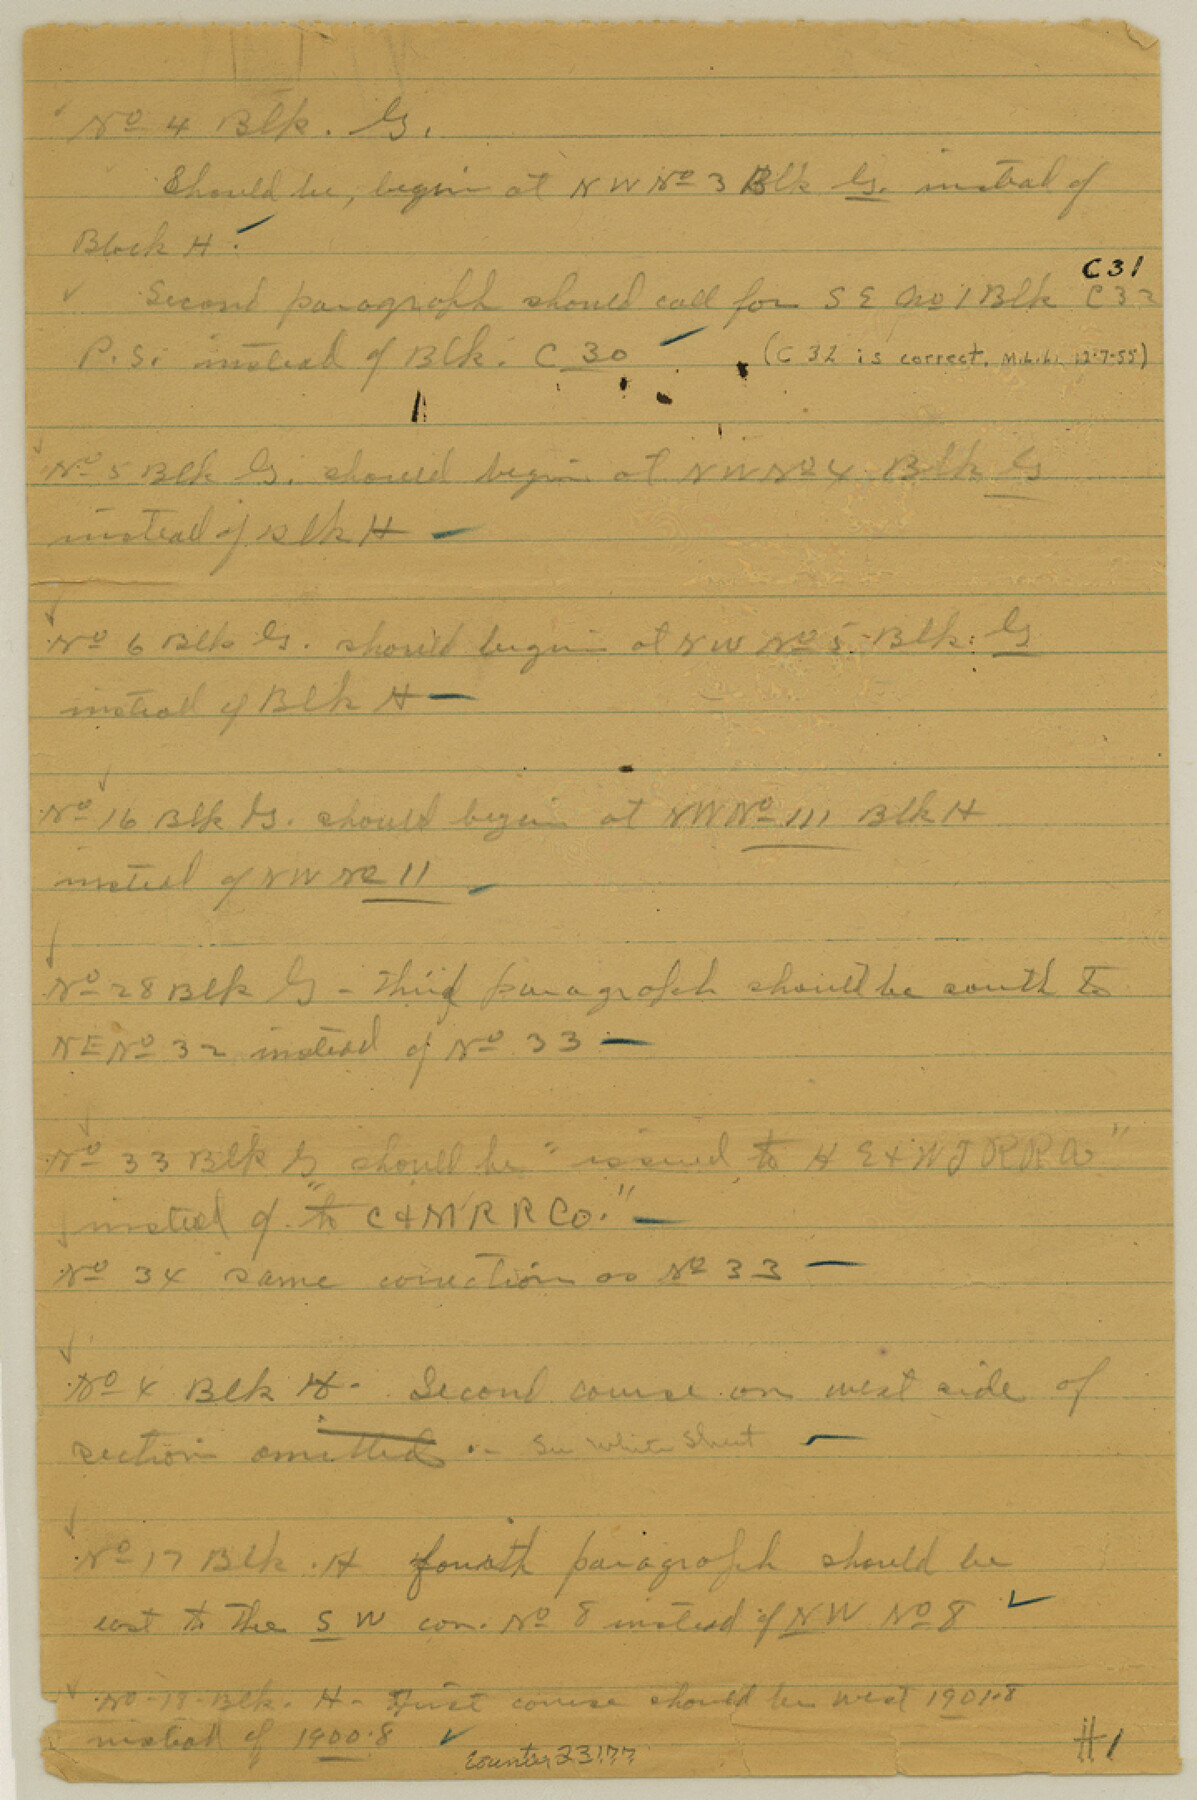 No 4 Blk. G.
Should be, begin at NW No 3 Blk G. instead of
Block H.
C31
Second paragraph should call for S E No 1 Blk C 32
P.S. instead of Blk. C 30 (C 32 is correct. 12-7-55)
No 5 Blk G. should begin at NW No 4 Blk G
instead of Blk H
No 6 Blk G. should begin at NW No 5 Blk. G
instead of Blk H
No 16 Blk G. should begin at NW No 111 Blk H
instead of NW No 11
No 28 Blk G - third paragraph should be south to
NE No 32 instead of No 33
No 33 Blk G should be "issued to H E & W T R R Co"
instead of "to C & M R R Co."
No 34 same correction as No 33
No 4 Blk H - Second course on west side of
section omitted - See White Sheet
No 17 Blk. H fourth paragraph should be
east to the S W cor. No 8 instead of NW No 8
No-18-Blk. H- First course should be west 1901.8
instead of 1900.8
counter 23177
#1